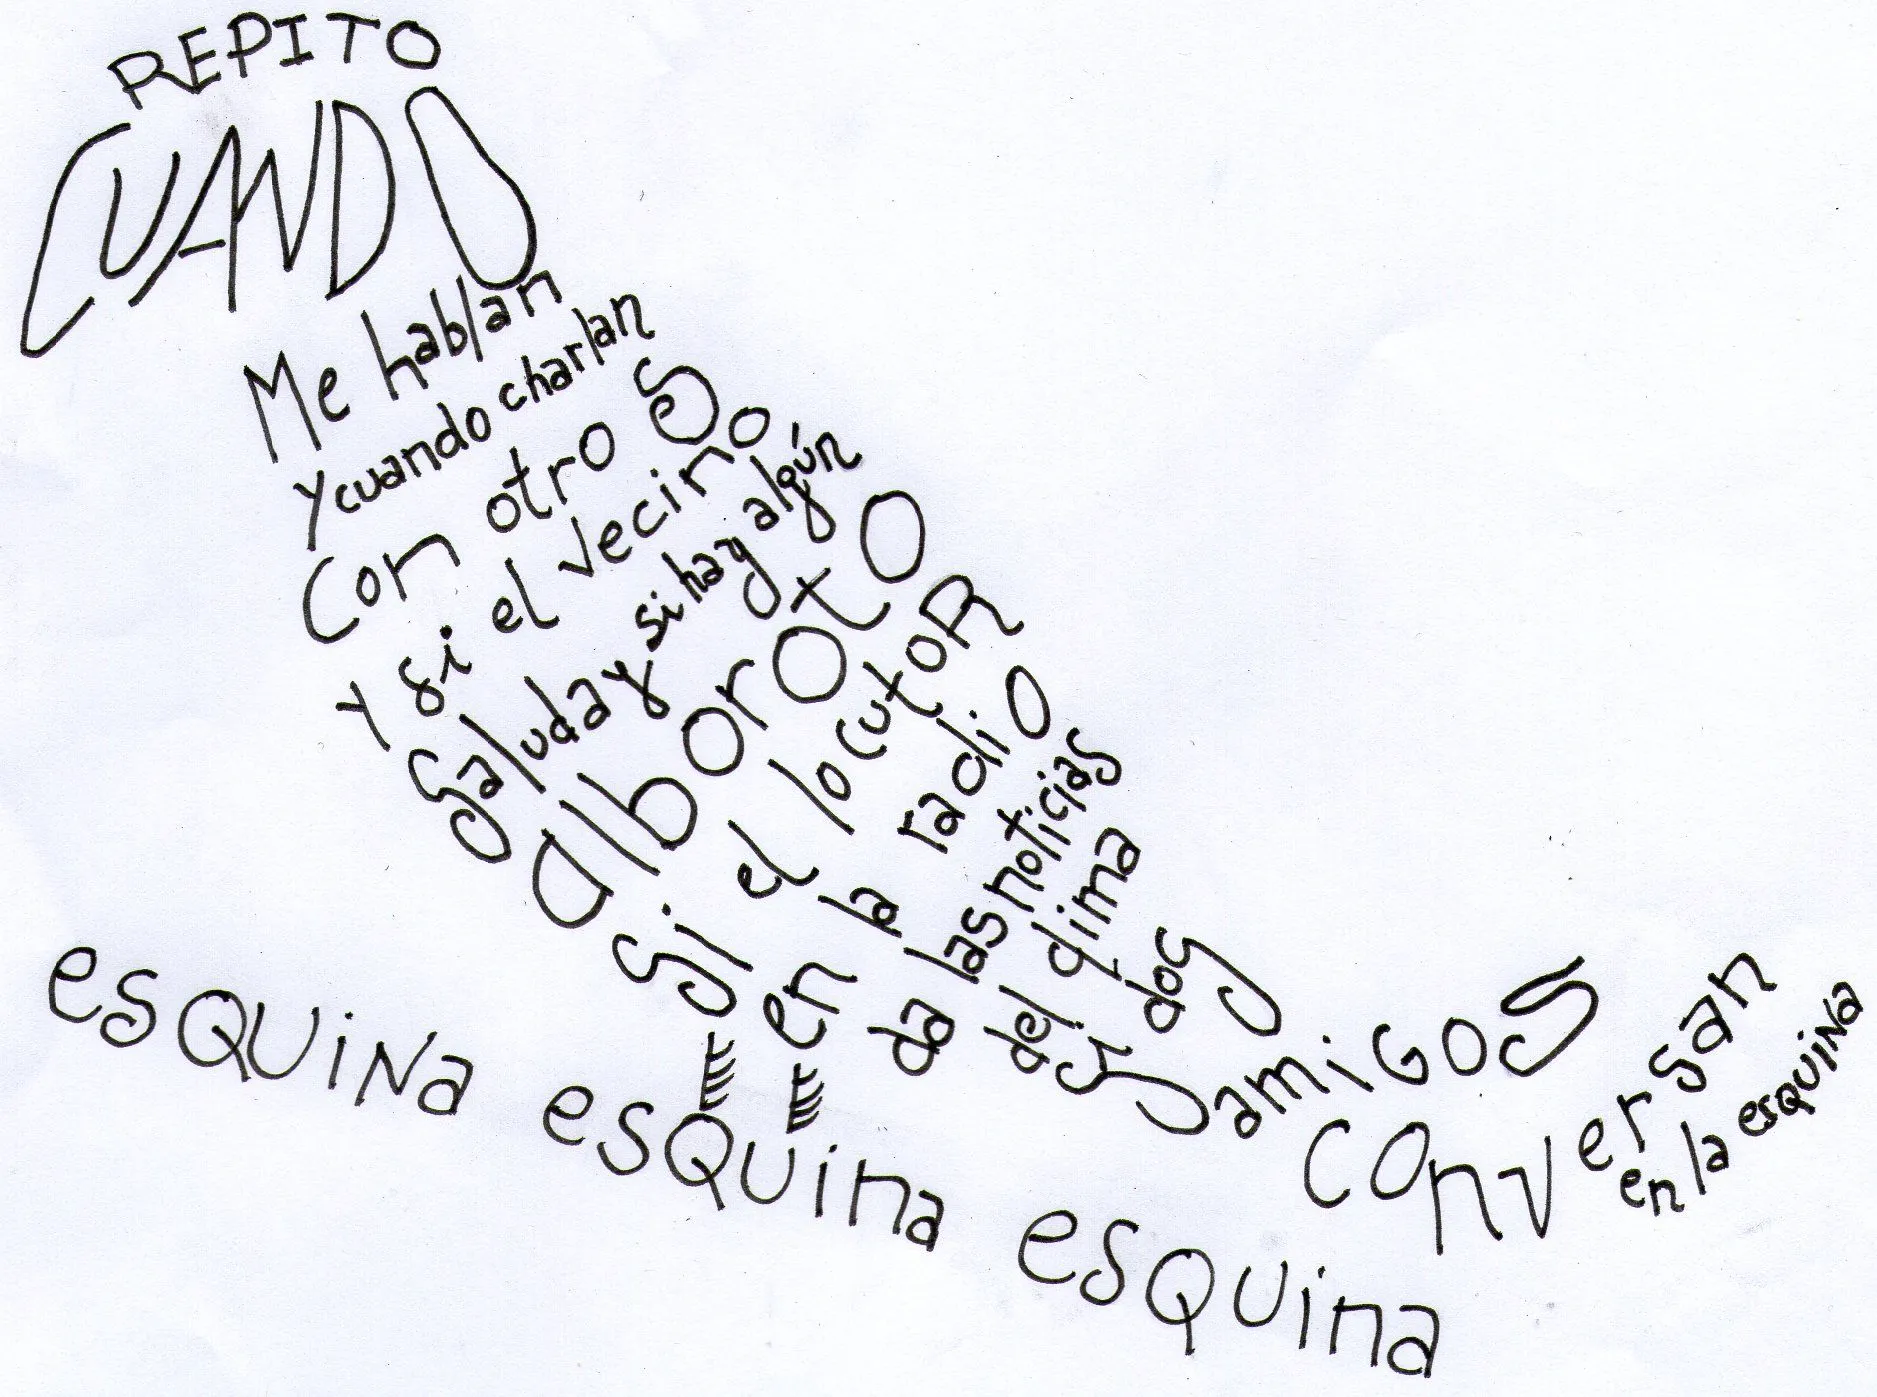 REPITO
CUANDO
Me hablan
y cuando charlan
Con otros
y si el vecino
Saluda y si hay algún
alboroto
Si el locutoR
en la radio
da las noticias
del clima
Si dos
amiGos
conversan
en la esquiNa
esQuiNa esQuina esQuina